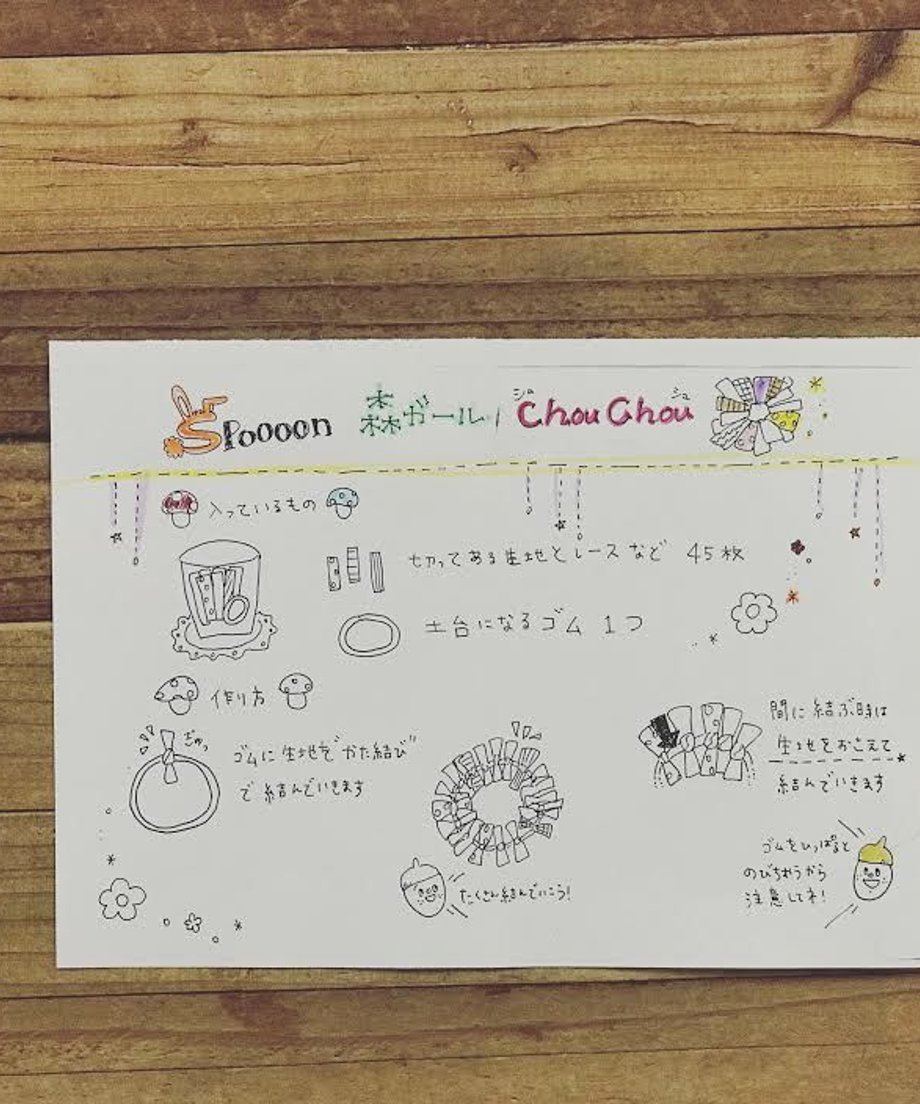 Spoooon 森ガール ChouChou
シュ シュ
入っているもの
切ってある生地とレースなど 45枚
土台になるゴム 1つ
作り方
ぎゅっ
ゴムに生地を"かた結び"
で結んでいきます
たくさん結んでいこう!
間に結ぶ時は
生地をおさえて
結んでいきます
ゴムをひっぱると
のびちゃうから
注意してネ!